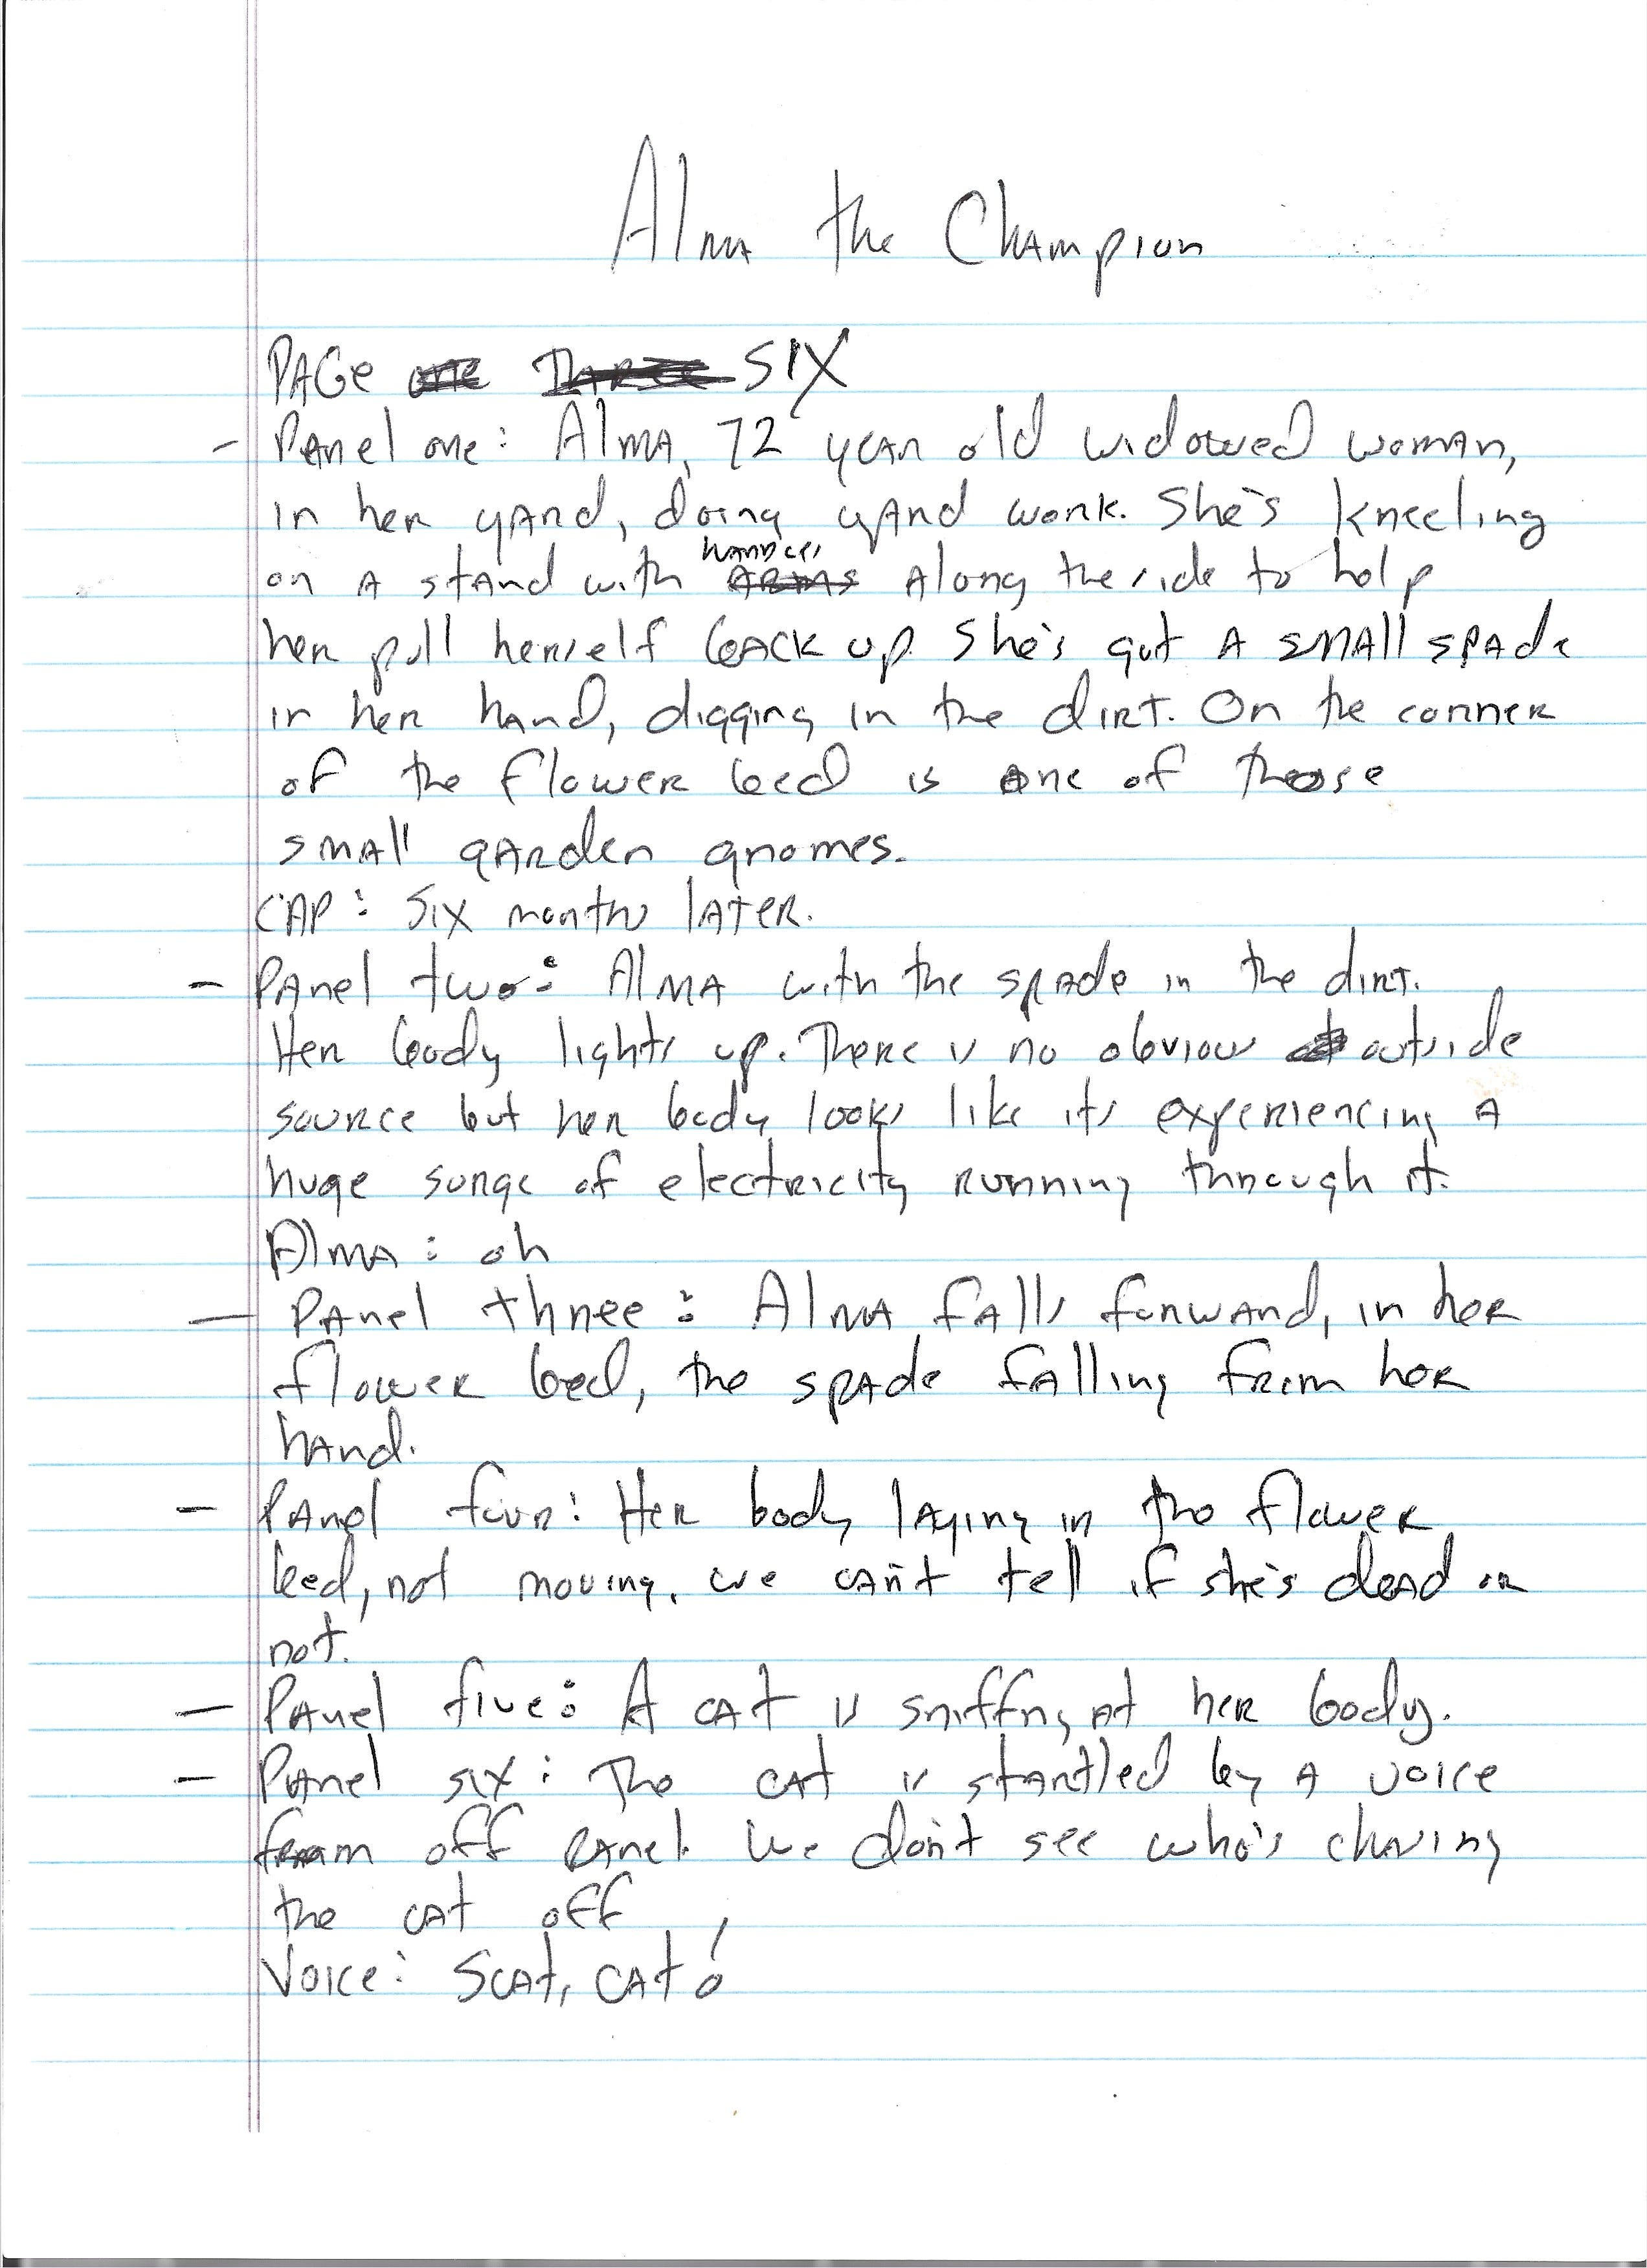 Alma the Champion
PAGE one THREE SIX
- Panel one: Alma, 72 year old widowed woman,
in her yard, doing yard work. She's kneeling
handles
on a stand with ARMS along the side to help
her pull herself back up. She's got a small spade
in her hand, digging in the dirt. On the corner
of the flower bed is one of those
small garden gnomes.
CAP: Six months later.
- Panel two: Alma with the spade in the dirt.
Her body lights up. There is no obvious outside
source but her body looks like its experiencing a
huge surge of electricity running through it.
Alma: oh
- Panel three: Alma falls forward, in her
flower bed, the spade falling from her
hand.
- Panel four: Her body laying in the flower
bed, not moving. We can't tell if she's dead or
not.
- Panel five: A cat is sniffing at her body.
- Panel six: The cat is startled by a voice
from off panel. We don't see who's chasing
the cat off
Voice: Scat, cat!